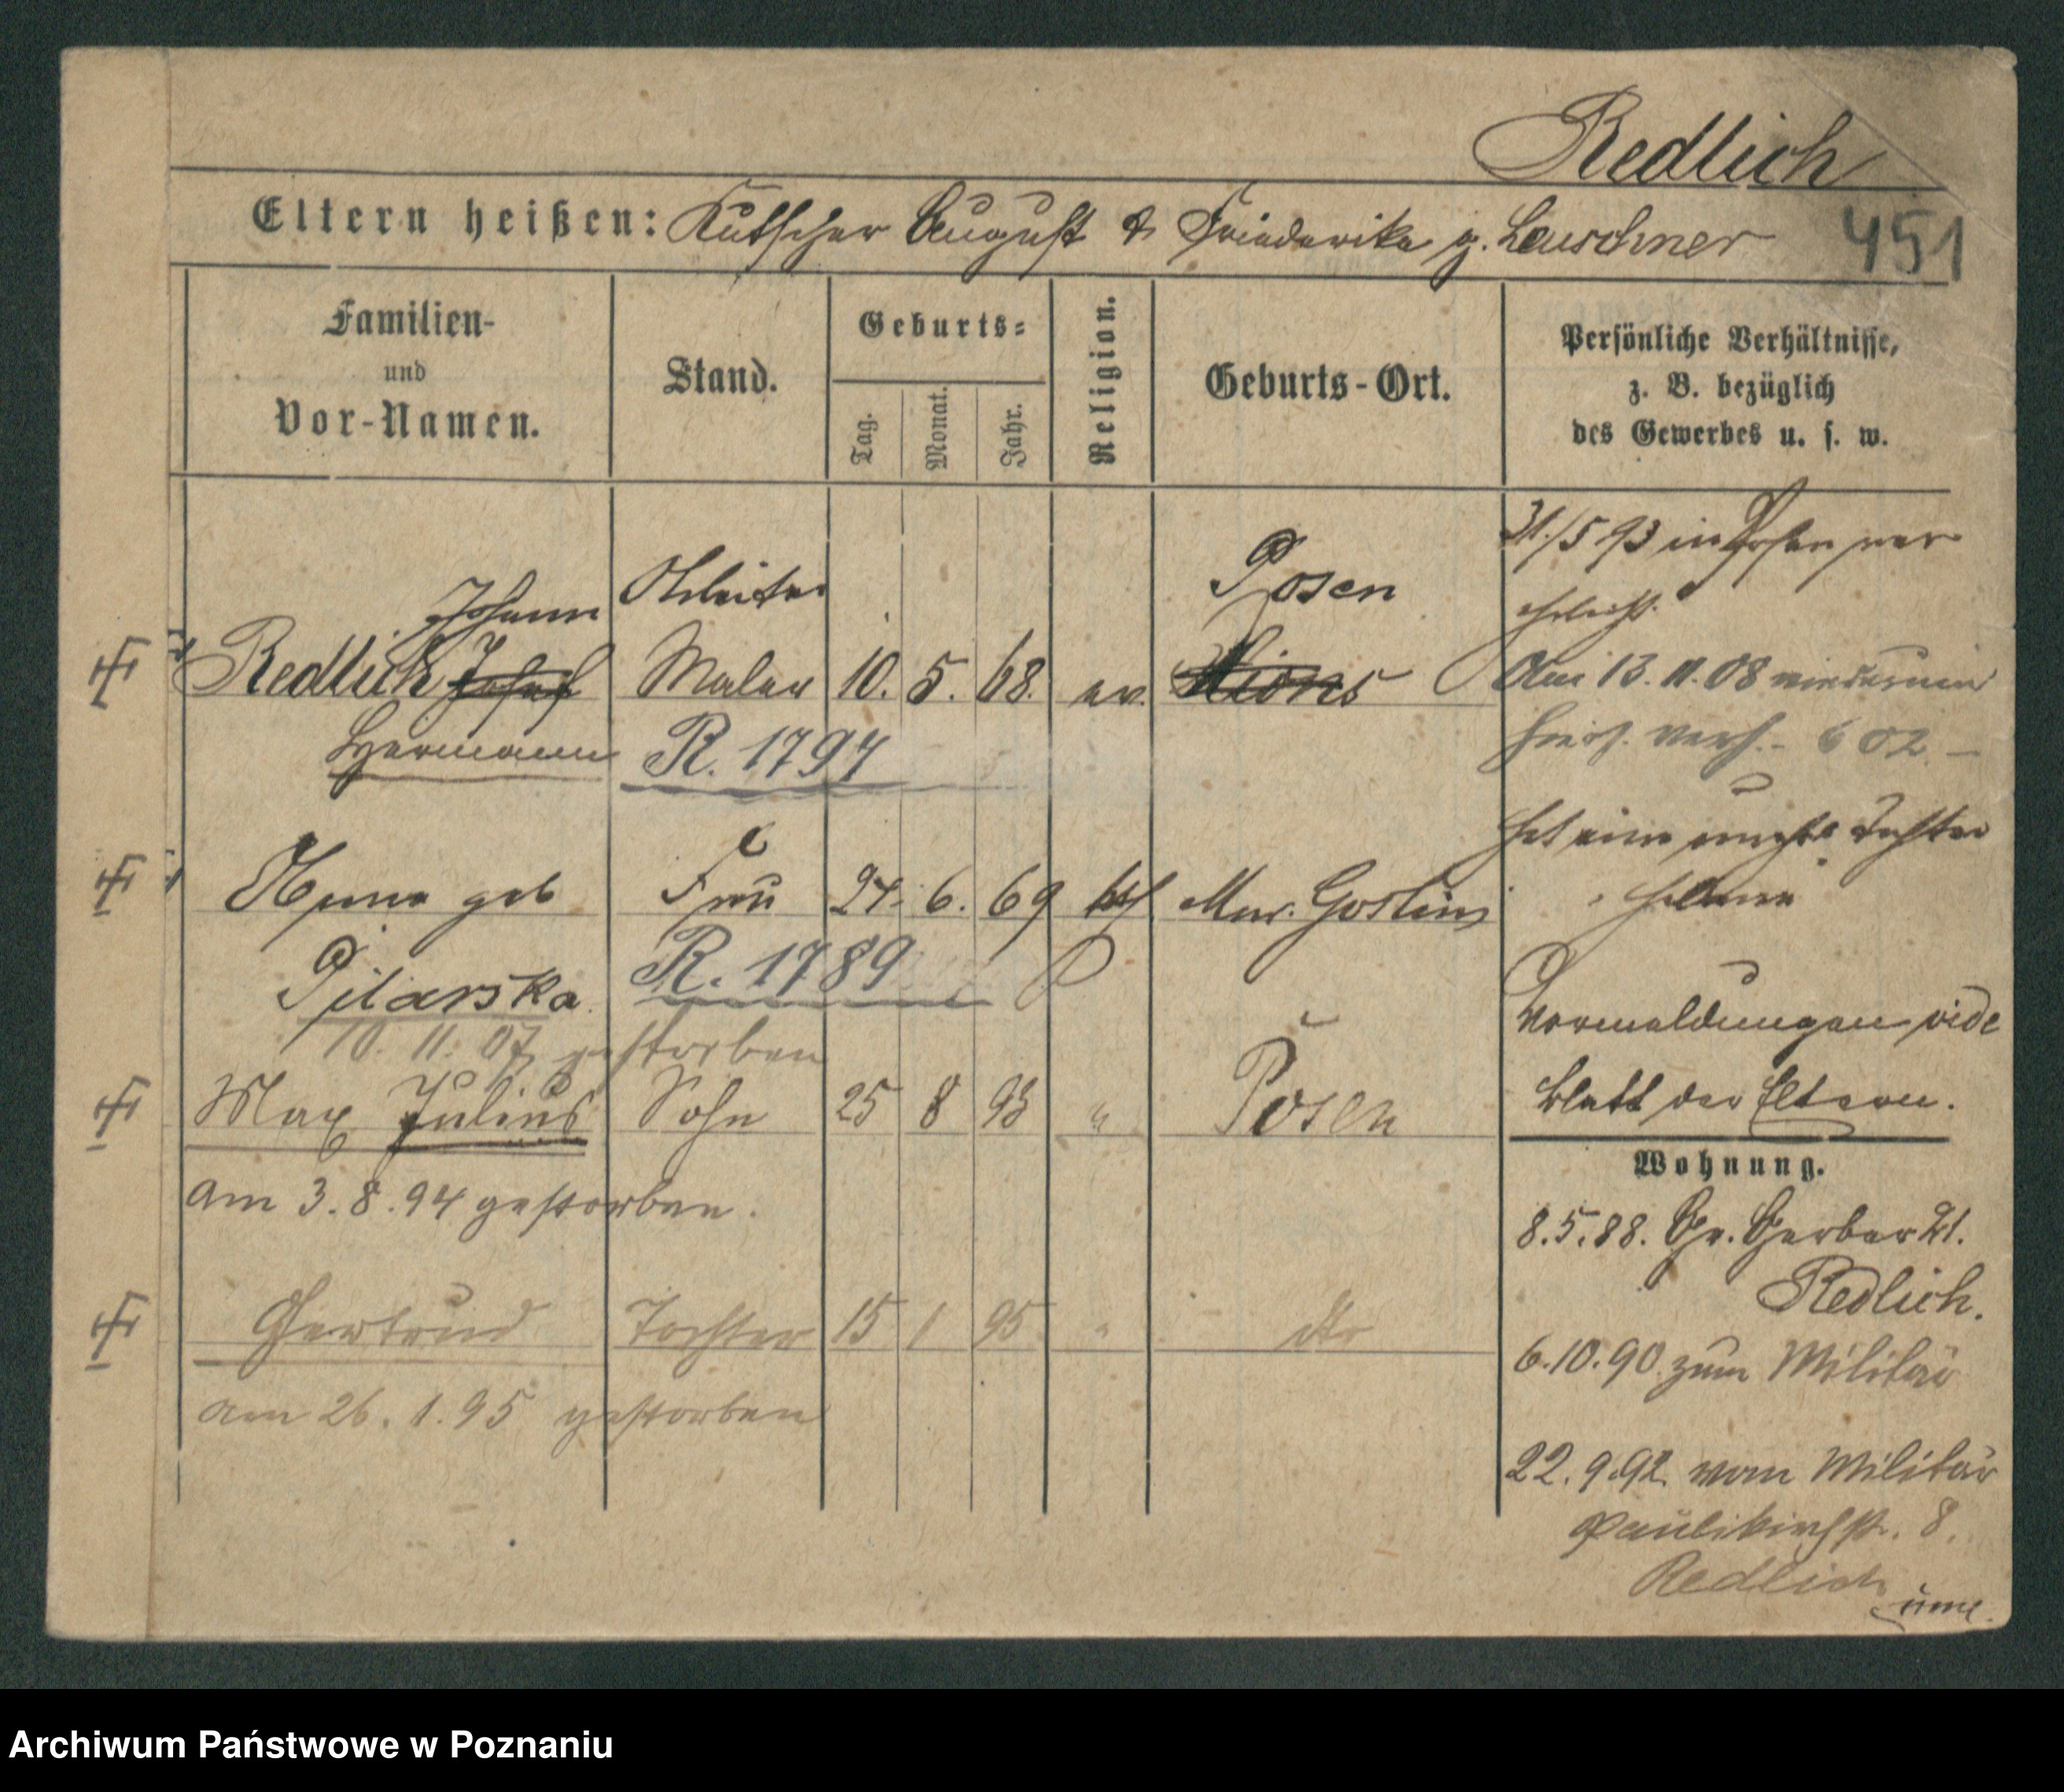 Redlich
451
Eltern heißen: Kutscher August & Friederike g. Leuschner
Familien-
und
Vor-Namen.
Stand.
Geburts-
Tag.
Monat.
Jahr.
Religion.
Geburts-Ort.
Persönliche Verhältnisse,
z. B. bezüglich
des Gewerbes u. s. w.
31/5 93 in Posen ver
ehelicht.
Johann
Arbeiter
Posen
Redlich Josef Maler 10. 5. 68. ev. Xions
Hermann
R. 1794
Am 13. 11. 08 wiederum
hier verh. - 602 -
hat eine unehel Tochter
Helene
Anna geb Frau 24. 6. 69 kth. Mur. Goslin
Pilarska
R. 1789
10. 11. 07 gestorben
Vormeldungen vide
Blatt der Eltern.
Max Julius Sohn 25 8 93 " Posen
am 3. 8. 94 gestorben.
Wohnung.
8.5.88. Gr. Gerber 21.
Redlich.
Gertrud Tochter 15 1 95 " dto
am 26. 1. 95 gestorben
6.10.90 zum Militär
22. 9. 92. vom Militär
Paulikirchstr. 8.
Redlich
Archiwum Państwowe w Poznaniu